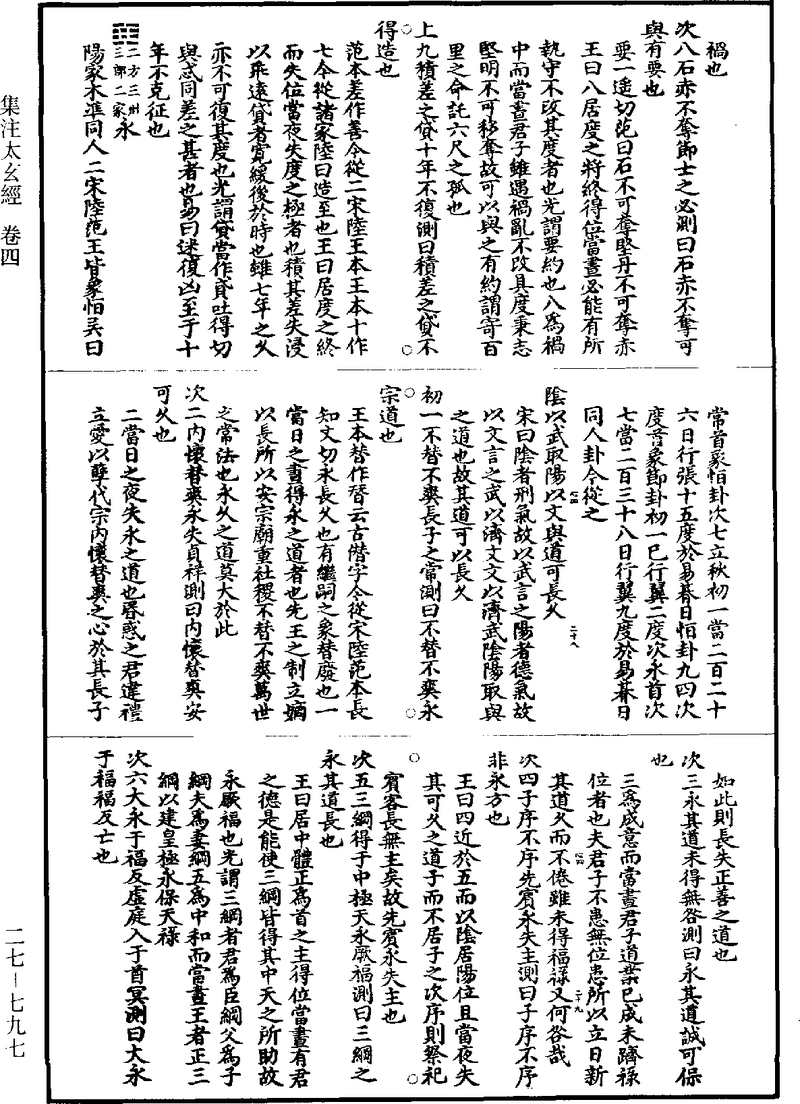 禍也
次八石赤不奪節士之必測曰石赤不奪可
與有要也
要一遥切范曰石不可奪堅丹不可奪赤
王曰八居度之將終得位當晝必能有所
執守不改其度者也光謂要約也八爲禍
中而當晝君子雖遇禍亂不改其度秉志
堅明不可移奪故可以與之有約謂寄百
里之命託六尺之孤也
上九積差之貸十年不復測曰積差之貸不
得造也
范本差作善今從二宋陸王本王本十作
七今從諸家陸曰造至也王曰居度之終
而失位當夜失度之極者也積其差失浸
以乖遠貸者寬緩後於時也雖七年之久
亦不可復其度也光謂貸當作貣吐得切
與忒同差之甚者也易曰迷復凶至于十
年不克征也
䷌二方三州三部二家永
陽家木準同人二宋陸范王皆象恒吴曰
常首象恒卦次七立秋初一當二百二十
六日行張十五度於易暮日恒卦九四次
度首象節卦初一已行翼二度次永首次
七當二百三十八日行翼九度於易暮日
同人卦今從之
陰以武取陽以文與道可長久
宋曰陰者刑氣故以武言之陽者德氣故
以文言之武以濟文文以濟武陰陽取與
之道也故其道可以長久
初一不替不爽長子之常測曰不替不爽永
宗道也
王本替作朁云古僭字今從宋陸范本長
知文切永長久也有繼嗣之象替廢也一
當日之晝得永之道者也先王之制立嫡
以長所以安宗廟重社稷不替不爽萬世
之常法也永久之道莫大於此
次二内懷替爽永失貞祥測曰内懷替爽安
可久也
二當日之夜失永之道也昬惑之君違禮
立愛以孽代宗内懷替爽之心於其長子
如此則長失正善之道也
次三永其道未得無咎測曰永其道誠可保
也
三爲成意而當晝君子道業已成未躋祿
位者也夫君子不患無位患所以立日新
其道久而不倦雖未得福祿又何咎哉
次四子序不序先賓永失主測曰子序不序
非永方也
王曰四近於五而以陰居陽位且當夜失
其可久之道子而不居子之次序則祭祀
賓客長無主矣故先賓永失主也
次五三綱得于中極天永厥福測曰三綱之
永其道長也
王曰居中體正爲首之主得位當晝有君
之德是能使三綱皆得其中天之所助故
永厥福也光謂三綱者君爲臣綱父爲子
綱夫爲妻綱五爲中和而當晝王者正三
綱以建皇極永保天祿
次六大永于福反虛庭入于首冥測曰大永
于福福反亡也
集注太玄經 卷四
二七-七九七